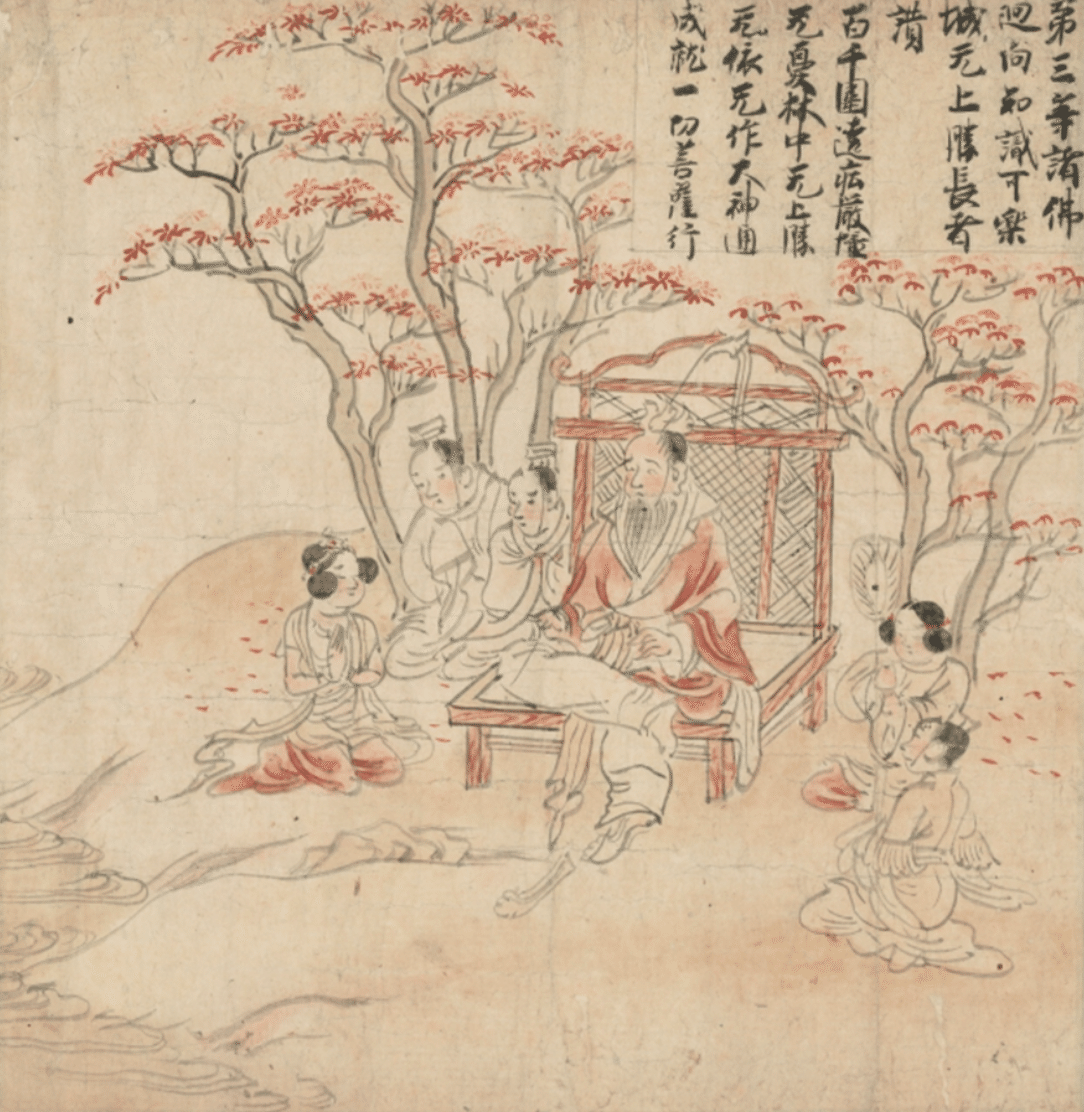 第三等諸佛
廻向知識可樂
城无上勝長者
讃
百千圍遶庄嚴幢
无憂林中无上勝
无依无作大神通
成就一切菩薩行